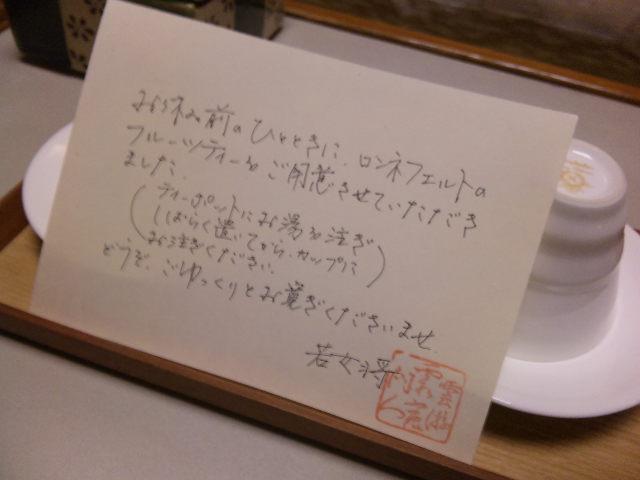 お休み前のひとときに、ロンネフェルトの
フルーツティーをご用意させていただき
ました。
(ティーポットにお湯を注ぎ
しばらく置いてから、カップに
お注ぎください。)
どうぞ、ごゆっくりとお寛ぎくださいませ。
若女将